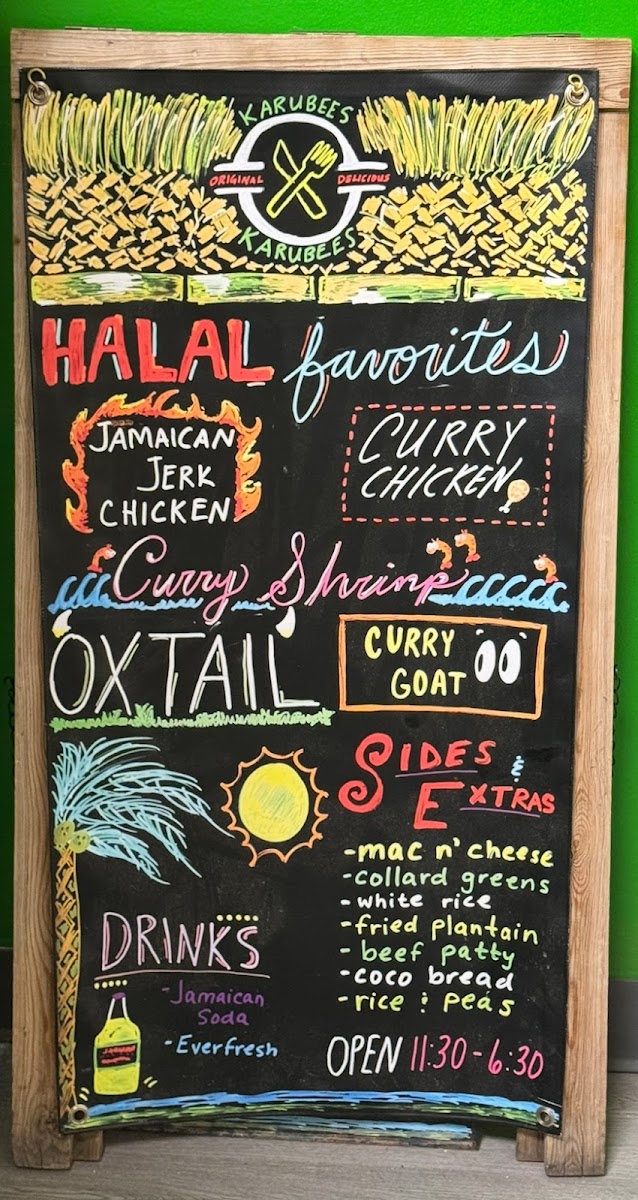 KARUBEES
ORIGINAL DELICIOUS
KARUBEES
HALAL favorites
JAMAICAN
JERK
CHICKEN
CURRY
CHICKEN
Curry Shrimp
OXTAIL
CURRY
GOAT
SIDES &
EXTRAS
-mac n' cheese
-collard greens
-white rice
-fried plantain
-beef patty
-coco bread
-rice & peas
DRINKS
-Jamaican
Soda
-Everfresh
OPEN 11:30-6:30